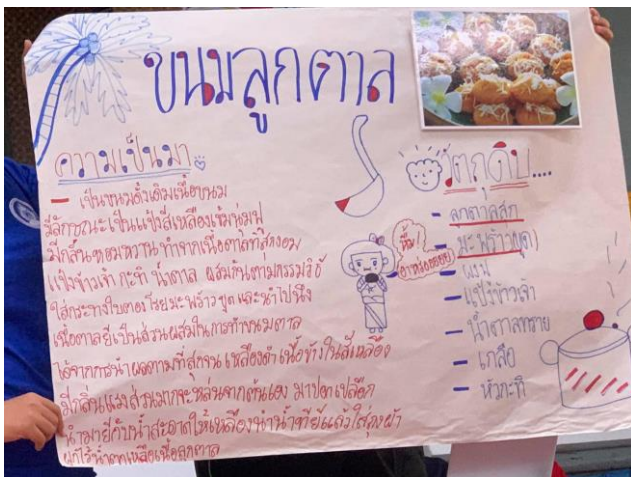 ขนมลูกตาล
ความเป็นมา
- เป็นขนมดั้งเดิมเนื้อขนม
มีลักษณะเป็นแป้งสีเหลืองเข้มนุ่มฟู
มีกลิ่นหอมหวาน ทำจากเนื้อตาลที่สุกงอม
แป้งข้าวเจ้า กะทิ น้ำตาล ผสมกันตามกรรมวิธี
ใส่กระทงใบตองโรยมะพร้าวขูด และนำไปนึ่ง
เนื้อตาลยีเป็นส่วนผสมในการทำขนมตาล
ได้จากการนำผลตาลที่สุกจน เหลืองดำ เนื้อข้างในสีเหลือง
มีกลิ่นแรงส่วนมากจะหล่นจากต้นเอง มาปอกเปลือก
นำมายีกับน้ำสะอาดให้เหลืองนำน้ำที่ยีแล้วใส่ถุงผ้า
ผูกไว้น้ำตกเหลือเนื้อลูกตาล
หึ้ม!
อาหร่อยยย
วัตถุดิบ....
- ลูกตาลสุก
- มะพร้าวขูด
- แป้งข้าวเจ้า
- น้ำตาลทราย
- เกลือ
- หัวกะทิ